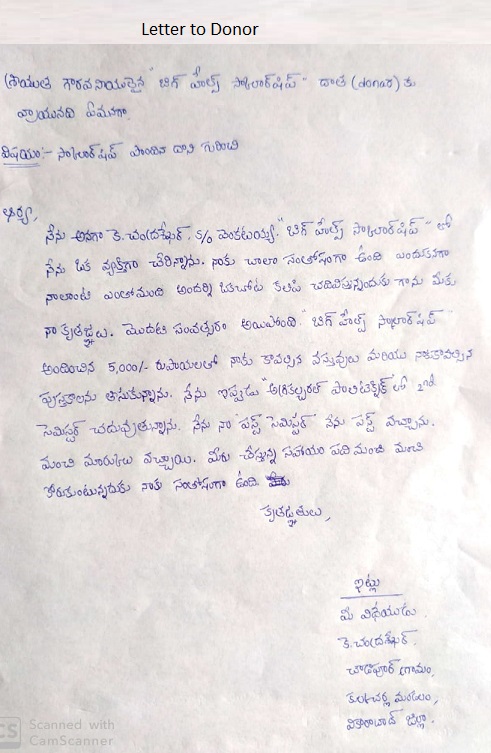 Letter to Donor
గౌరవనీయులైన "బిగ్ హెల్ప్ స్కాలర్‌షిప్" దాత (donar) కు
వ్రాయునది ఏమనగా
విషయం:- స్కాలర్‌షిప్ పొందిన దాని గురించి
ఆర్య,
నేను అనగా కె. చంద్రశేఖర్. S/o వెంకటయ్య. "బిగ్ హెల్ప్ స్కాలర్‌షిప్" లో
నేను ఒక వ్యక్తిగా చేరిన్నాను. నాకు చాలా సంతోషంగా ఉంది ఎందుకనగా
నాలాంటి ఎంతోమంది అందర్ని ఒకచోట కలిపి చదివిస్తున్నందుకు గాను మీకు
నా కృతజ్ఞలు. మొదటి సంవత్సరం అయిపోంది "బిగ్ హెల్ప్ స్కాలర్‌షిప్"
అందించిన 5,000/- రుపాయలలో నాకు కావల్సిన వస్తువులు మరియు నాకుకావల్సిన
పుస్తకాలను తీసుకున్నాను. నేను ఇప్పుడు "అగ్రికల్చరల్ పాలిటెక్నిక్" లో 2nd
సెమిస్టర్ చదువుతున్నాను. నేను నా "ఫస్ట్ సెమిస్టర్" నేను ఫస్ట్ వచ్చాను.
మంచి మార్కులు వచ్చాయి. మీరు చేస్తున్న సహాయం పది మంది మంచి
కోరుకుంటున్నదుకు నాకు సంతోషంగా ఉంది.
కృతజ్ఞతలు,
ఇట్లు
మీ విధేయుడు
కె. చంద్రశేఖర్.
గ్రామం,
మండలం,
వికారాబాద్ జిల్లా.
CS Scanned with
CamScanner